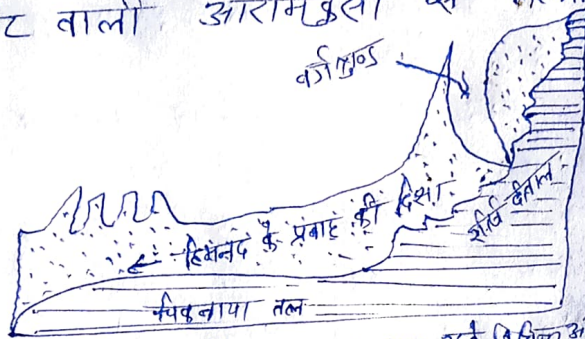 ट वाली आरामकुर्सी
बर्गश्रुण्ड
हिमनद के प्रवाह की दिशा
शीर्ष वेताल
चिकनाया तल